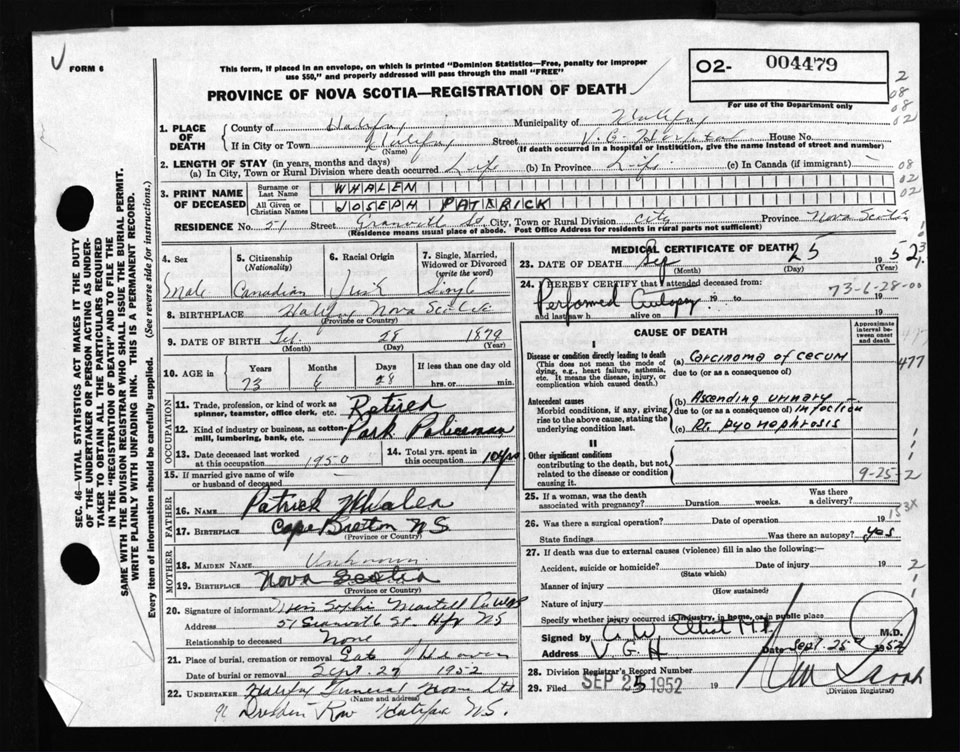 FORM 6
This form, if placed in an envelope, on which is printed "Dominion Statistics—Free, penalty for improper
use $50," and properly addressed will pass through the mail "FREE"
PROVINCE OF NOVA SCOTIA—REGISTRATION OF DEATH
O2- 004479
For use of the Department only
2
08
08
02
1. PLACE OF DEATH
County of Halifax Municipality of Halifax
If in City or Town Halifax Street V. G. Hospital House No.
(Name) (If death occurred in a hospital or institution, give the name instead of street and number)
2. LENGTH OF STAY (in years, months and days)
(a) In City, Town or Rural Division where death occurred Life (b) In Province Life (c) In Canada (if immigrant) —
08
02
02
3. PRINT NAME OF DECEASED
Surname or Last Name WHALEN
All Given or Christian Names JOSEPH PATRICK
RESIDENCE No. 51 Street St. City, Town or Rural Division City Province Nova Scotia
(Residence means usual place of abode. Post Office Address for residents in rural parts not sufficient)
4. Sex Male
5. Citizenship (Nationality) Canadian
6. Racial Origin
7. Single, Married, Widowed or Divorced (write the word) Single
8. BIRTHPLACE Halifax Nova Scotia
(Province or Country)
9. DATE OF BIRTH Feb. 28 1879
(Month) (Day) (Year)
10. AGE in Years Months Days If less than one day old
73 6 28 hrs. or min.
OCCUPATION
11. Trade, profession, or kind of work as spinner, teamster, office clerk, etc. Retired
12. Kind of industry or business, as cotton-mill, lumbering, bank, etc. Park Policeman
13. Date deceased last worked at this occupation 1950
14. Total yrs. spent in this occupation 10 yrs
15. If married give name of wife or husband of deceased
FATHER
16. Name Patrick Whalen
17. Birthplace Cape Breton N.S.
(Province or Country)
MOTHER
18. MAIDEN NAME Unknown
19. BIRTHPLACE Nova Scotia
(Province or Country)
20. Signature of informant Sophie Martell
Address 51 St. Hfx N.S
Relationship to deceased None
21. Place of burial, cremation or removal
Date of burial or removal Sept 27 1952
22. UNDERTAKER Halifax Funeral Home Ltd
(Name and address)
91 Dresden Row Halifax N.S.
MEDICAL CERTIFICATE OF DEATH
23. DATE OF DEATH Sep 25 1952
(Month) (Day) (Year)
24. I HEREBY CERTIFY that I attended deceased from:
Performed Autopsy to 19
and last saw h alive on 19
73-6-28-00
CAUSE OF DEATH
Approximate interval between onset and death
I
Disease or condition directly leading to death
(This does not mean the mode of dying, e.g., heart failure, asthenia, etc. It means the disease, injury, or complication which caused death.)
(a) Carcinoma of cecum
due to (or as a consequence of)
477
Antecedent causes
Morbid conditions, if any, giving rise to the above cause, stating the underlying condition last.
(b) Ascending urinary
due to (or as a consequence of) infection
(c) Rt. pyonephrosis
II
Other significant conditions
contributing to the death, but not related to the disease or condition causing it.
9-25-2
25. If a woman, was the death associated with pregnancy? Duration weeks. Was there a delivery?
26. Was there a surgical operation? Date of operation 19
State findings Was there an autopsy? yes
27. If death was due to external causes (violence) fill in also the following:—
Accident, suicide or homicide? Date of injury 19
(State which)
Manner of injury
(How sustained)
Nature of injury
Specify whether injury occurred in industry, in home, or in public place
Signed by M.D.
Address V.G.H Date Sept. 25 1952
28. Division Registrar's Record Number
29. Filed SEP 25 1952 19
(Division Registrar)
SEC. 46—VITAL STATISTICS ACT MAKES IT THE DUTY
OF THE UNDERTAKER OR PERSON ACTING AS UNDER-
TAKER TO OBTAIN ALL THE PARTICULARS REQUIRED
IN THE "REGISTRATION OF DEATH" AND TO FILE THE
SAME WITH THE DIVISION REGISTRAR WHO SHALL ISSUE THE BURIAL PERMIT.
WRITE PLAINLY WITH UNFADING INK. THIS IS A PERMANENT RECORD.
Every item of information should be carefully supplied. (See reverse side for instructions.)